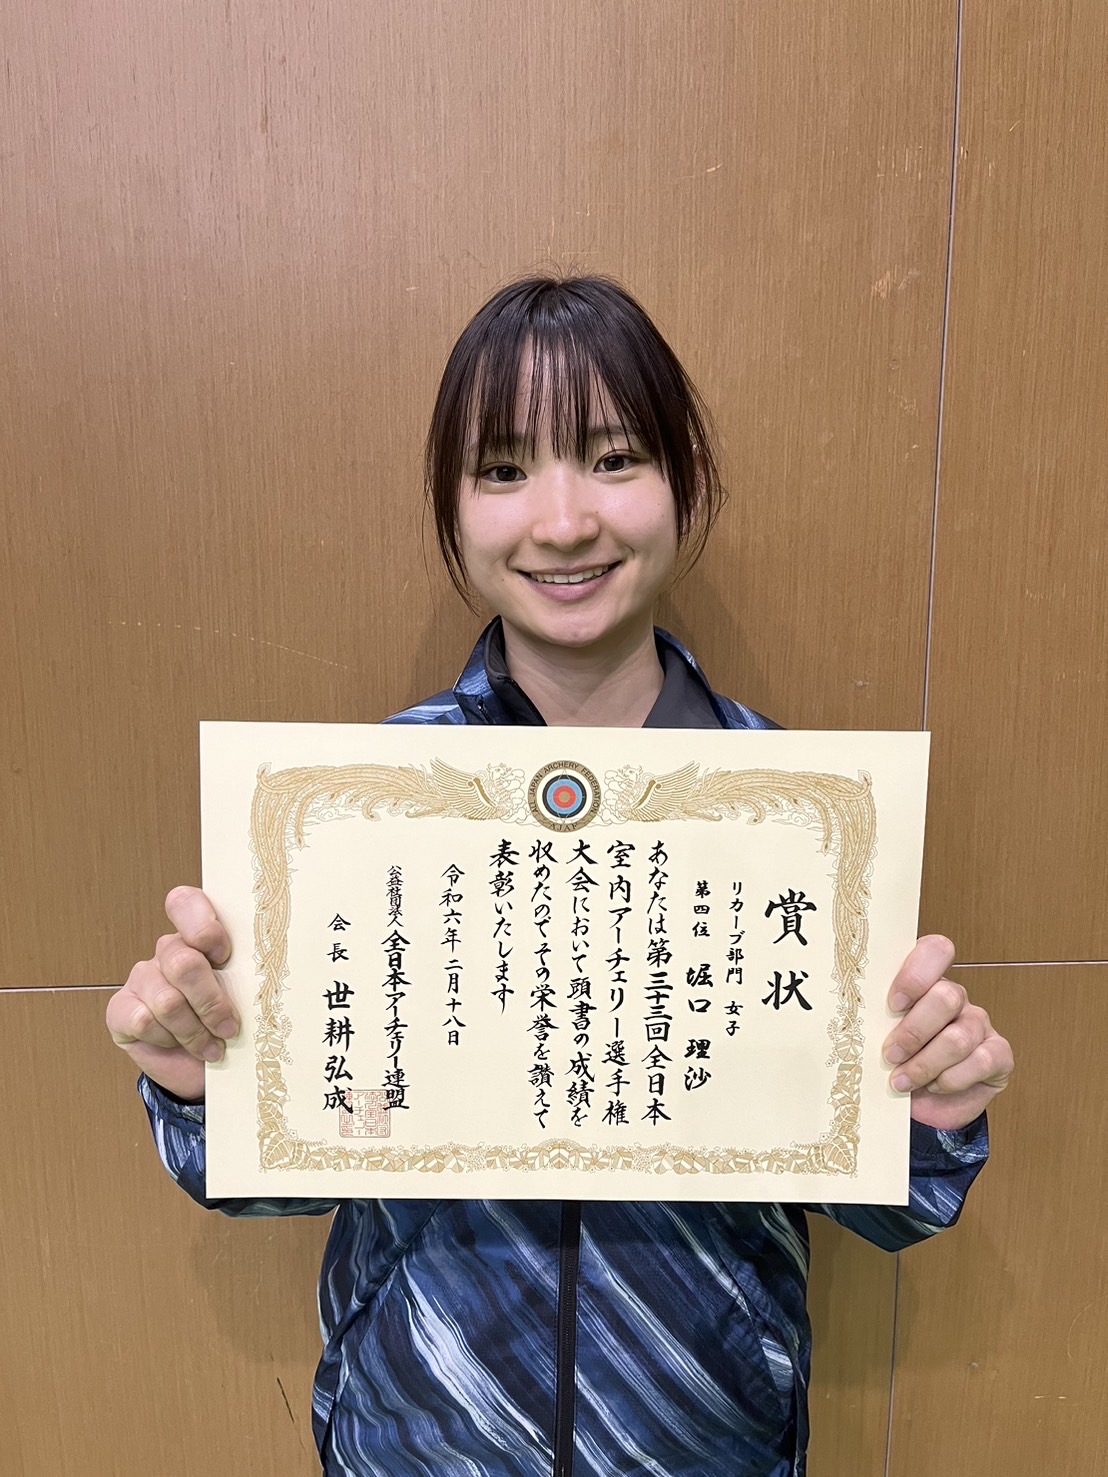 賞状
リカーブ部門 女子
第四位 堀口 理沙
あなたは第三十三回全日本
室内アーチェリー選手権
大会において頭書の成績を
収めたのでその栄誉を讃えて
表彰いたします
令和六年二月十八日
公益社団法人 全日本アーチェリー連盟
会長 世耕弘成
ALL JAPAN ARCHERY FEDERATION
AJAF